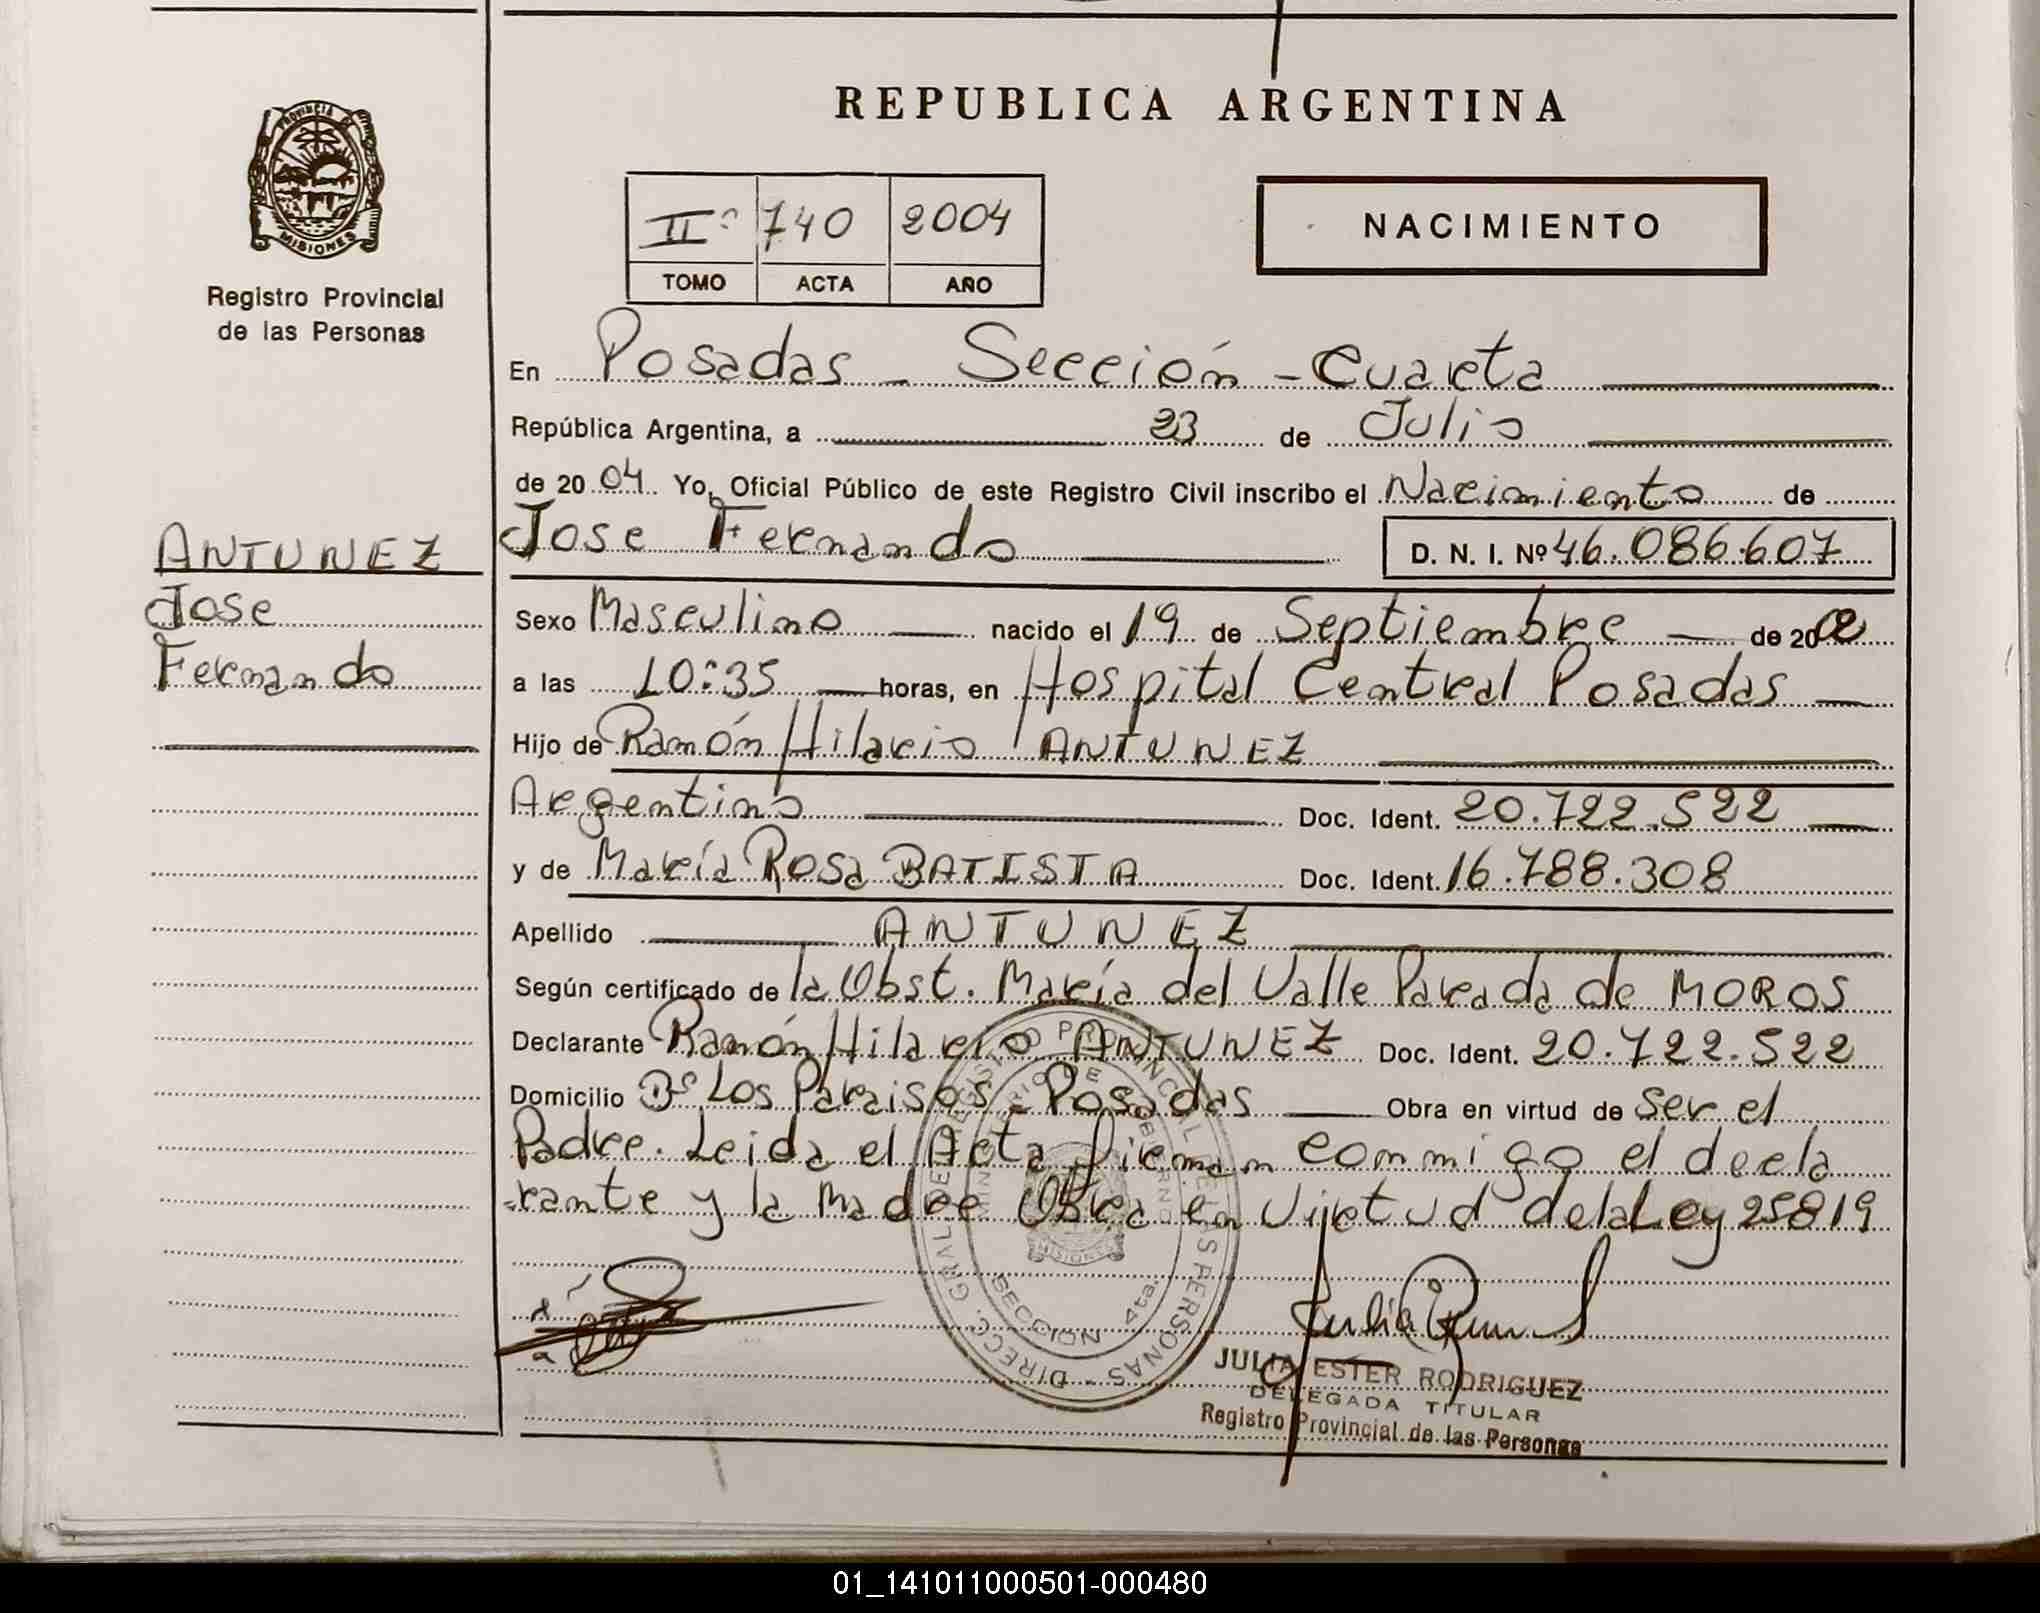 REPUBLICA ARGENTINA
PROVINCIA DE
MISIONES
Registro Provincial
de las Personas
IIº 740 2004
TOMO ACTA AÑO
NACIMIENTO
En Posadas - Sección - Cuarta
República Argentina, a 23 de Julio
de 2004 Yo, Oficial Público de este Registro Civil inscribo el Nacimiento de
Jose Fernando D. N. I. Nº 46.086.607
ANTUNEZ
Jose
Fernando
Sexo Masculino nacido el 19 de Septiembre de 20
a las 10:35 horas, en Hospital Central Posadas
Hijo de Ramón Hilario ANTUNEZ
Argentino Doc. Ident. 20.722.522
y de María Rosa BATISTA Doc. Ident. 16.788.308
Apellido ANTUNEZ
Según certificado de la Obst. María del Valle Parada de MOROS
Declarante Ramón Hilario ANTUNEZ Doc. Ident. 20.722.522
Domicilio Bº Los Paraisos - Posadas Obra en virtud de ser el
Padre. Leida el Acta firman conmigo el decla
rante y la Madre Obra en Virtud de la Ley 25819
DIRECC. GRAL. DE REGISTRO PROVINCIAL DE LAS PERSONAS
MINISTERIO DE GOBIERNO
MISIONES
SECCION 4ta.
JULIA ESTER RODRIGUEZ
DELEGADA TITULAR
Registro Provincial de las Personas
01_141011000501-000480